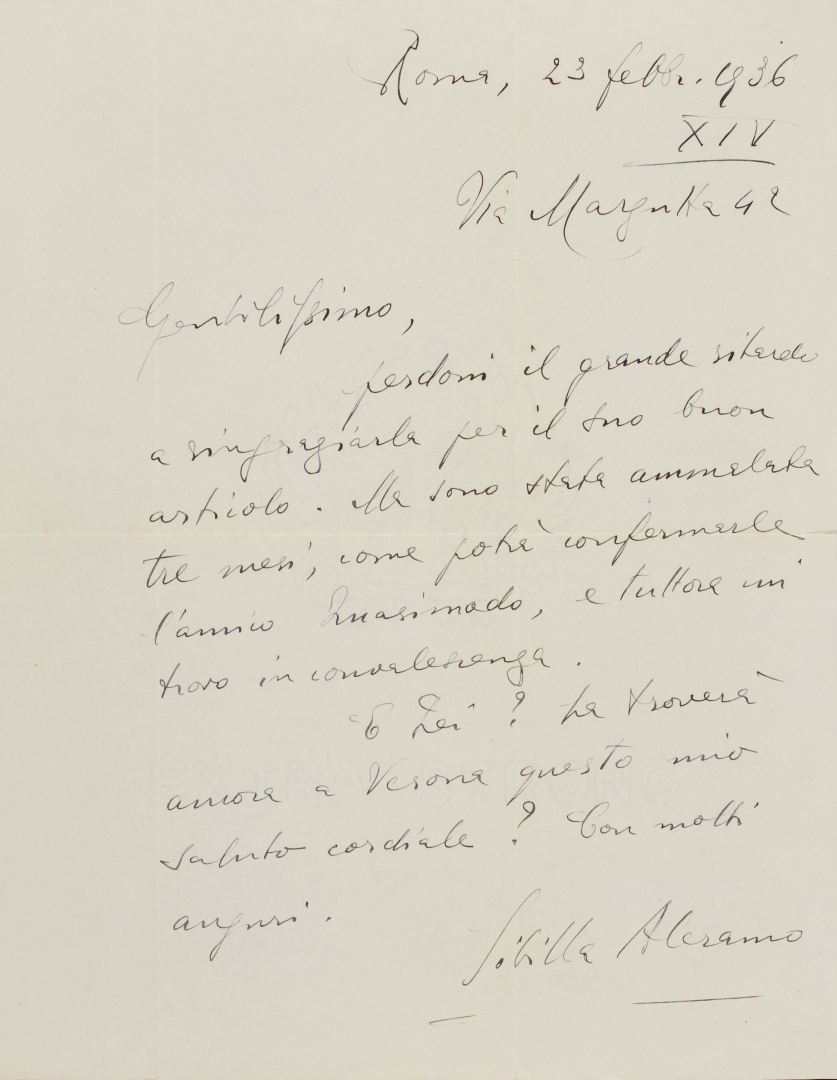 Roma, 23 febbr. 1936
XIV
Via Margutta 42
Gentilissimo,
perdoni il grande ritardo
a ringraziarla per il suo buon
articolo. Ma sono stata ammalata
tre mesi, come potrà confermarle
l'amico Quasimodo, e tuttora mi
trovo in convalescenza.
E Lei? La troverà
ancora a Verona questo mio
saluto cordiale? Con molti
auguri.
Sibilla Aleramo